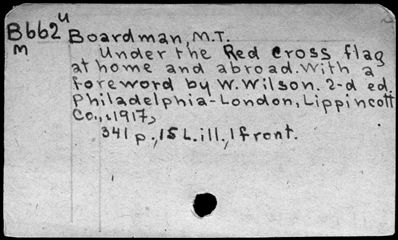 B662u
m
Boardman, M.T.
Under the Red Cross flag
at home and abroad. With a
foreword by W. Wilson. 2-d ed.
Philadelphia-London, Lippincott
Co., 1917,
341 p., 15 L. ill., 1 front.